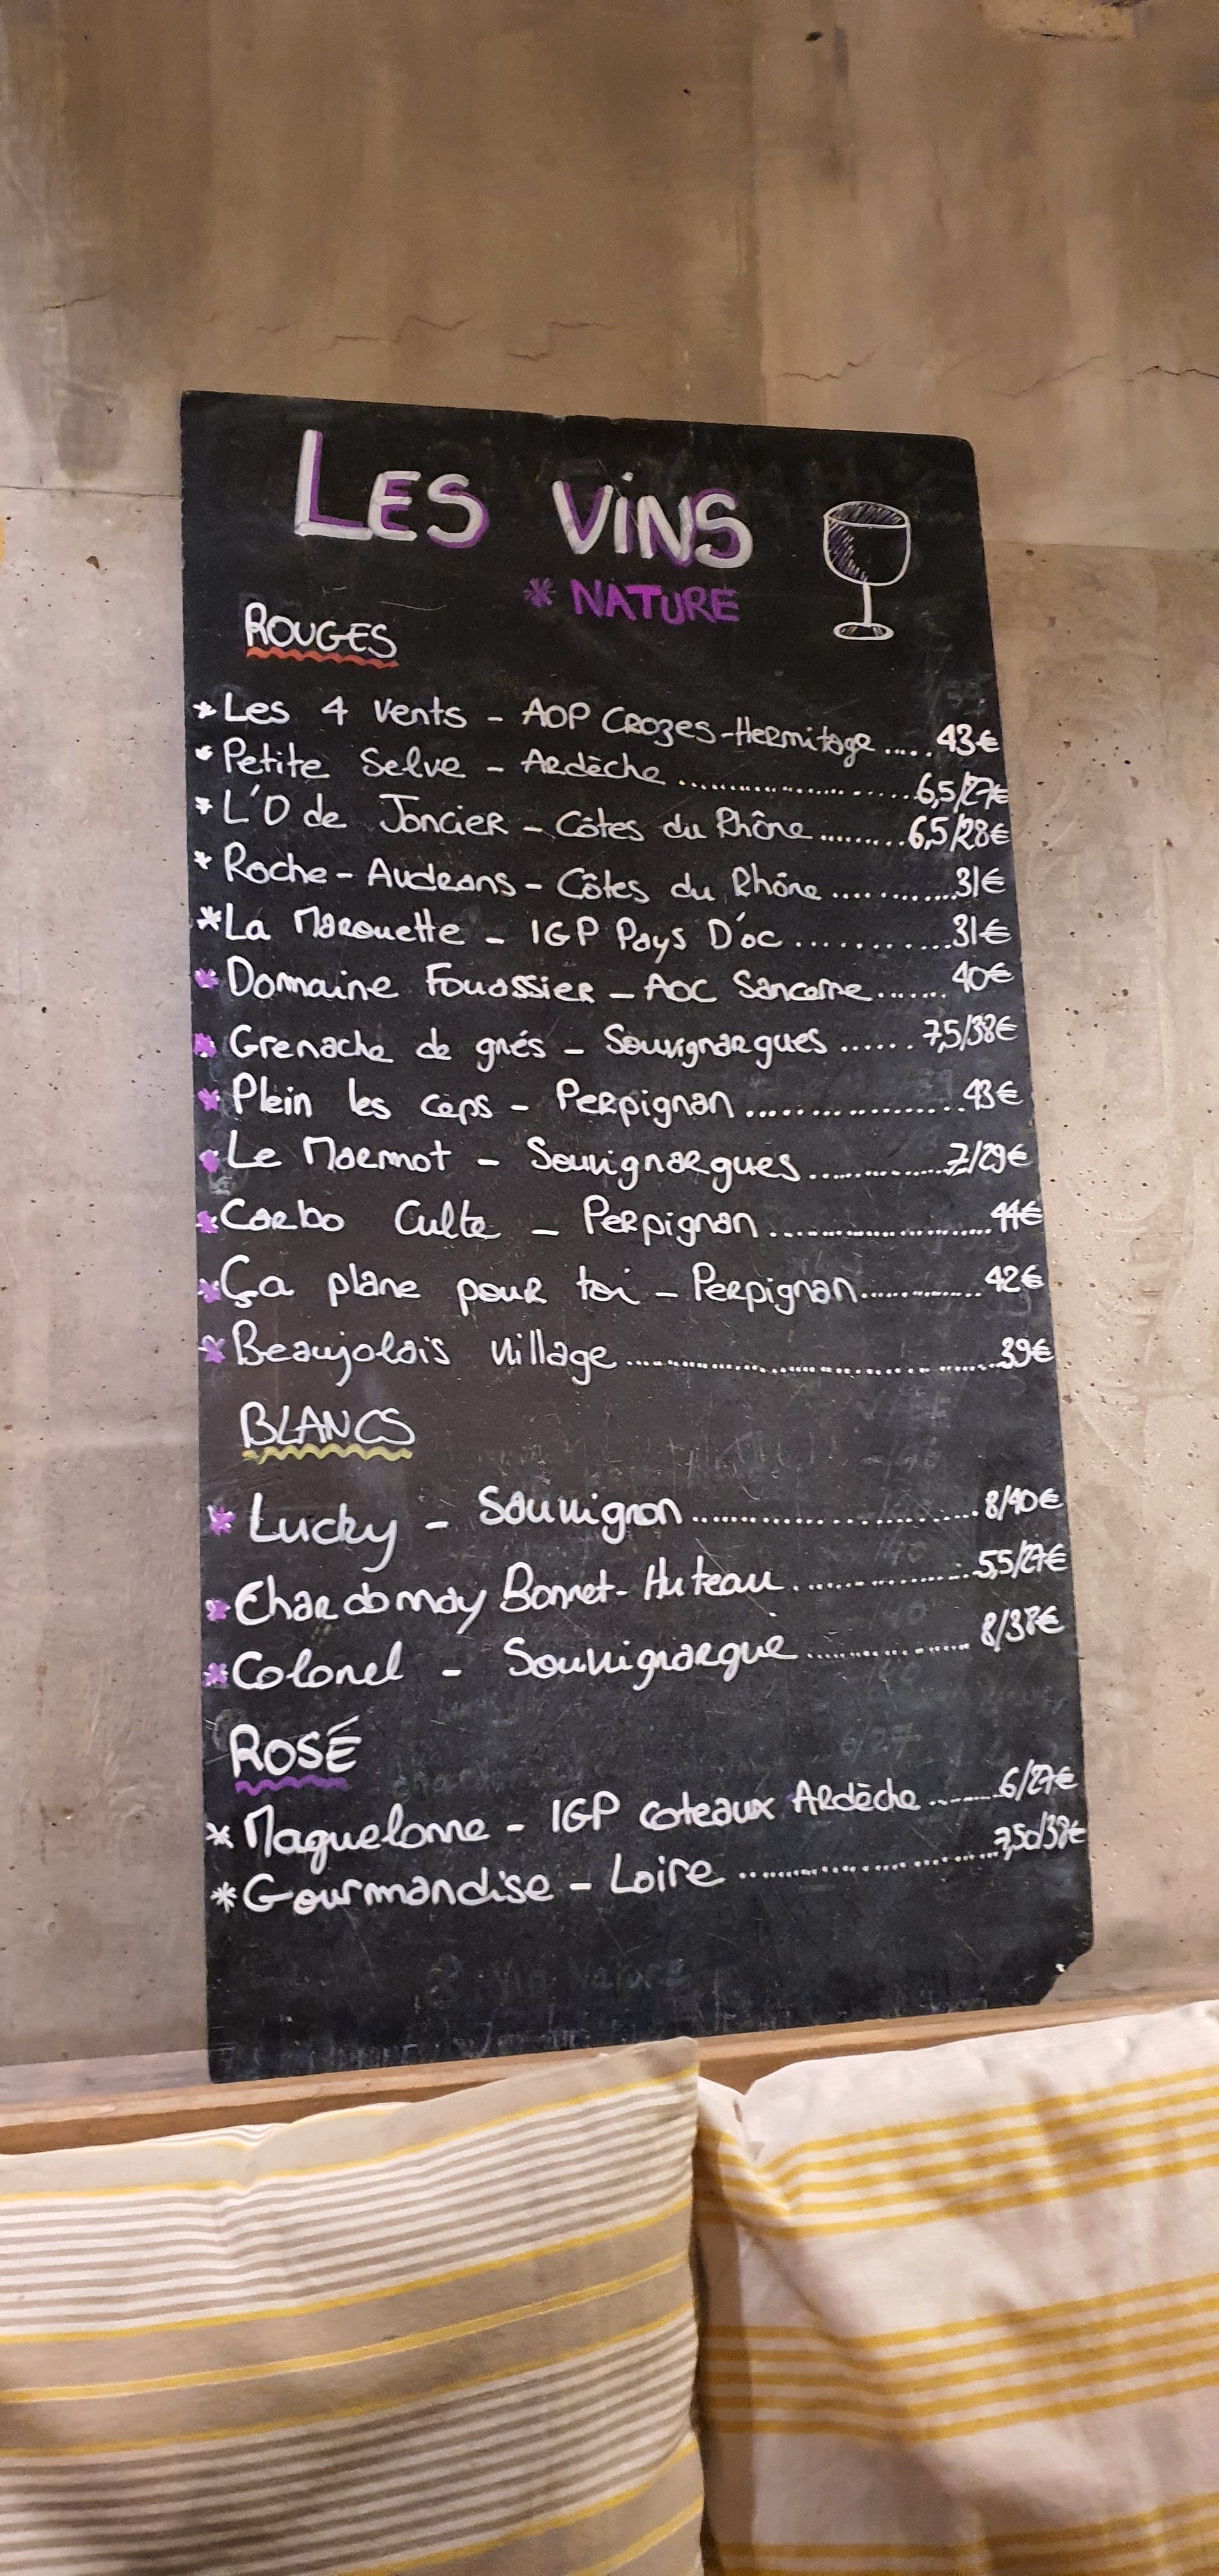 LES VINS
* NATURE
ROUGES
* Les 4 vents - AOP CROZES-HERMITAGE ..... 43€
* Petite Selve - Ardèche .......... 6,5/27€
* L'O de Joncier - Côtes du Rhône ......... 6,5/28€
* Roche-Audrans - Côtes du Rhône ............ 31€
* La Marouette - IGP Pays D'oc ............ 31€
* Domaine Fouassier - AOC Sancerre ....... 40€
* Grenache de grés - Souvignargues ...... 7,5/38€
* Plein les ceps - Perpignan .......... 43€
* Le Marmot - Souvignargues .......... 7/29€
* Carbo Culte - Perpignan .......... 44€
* Ça plane pour toi - Perpignan .......... 42€
* Beaujolais Village .......... 39€
BLANCS
* Lucky - Sauvignon .......... 8/40€
* Chardonnay Bonnet-Huteau .......... 5,5/27€
* Colonel - Souvignargue .......... 8/38€
ROSÉ
* Maguelonne - IGP coteaux Ardèche ....... 6/27€
* Gourmandise - Loire .......... 7,50/38€